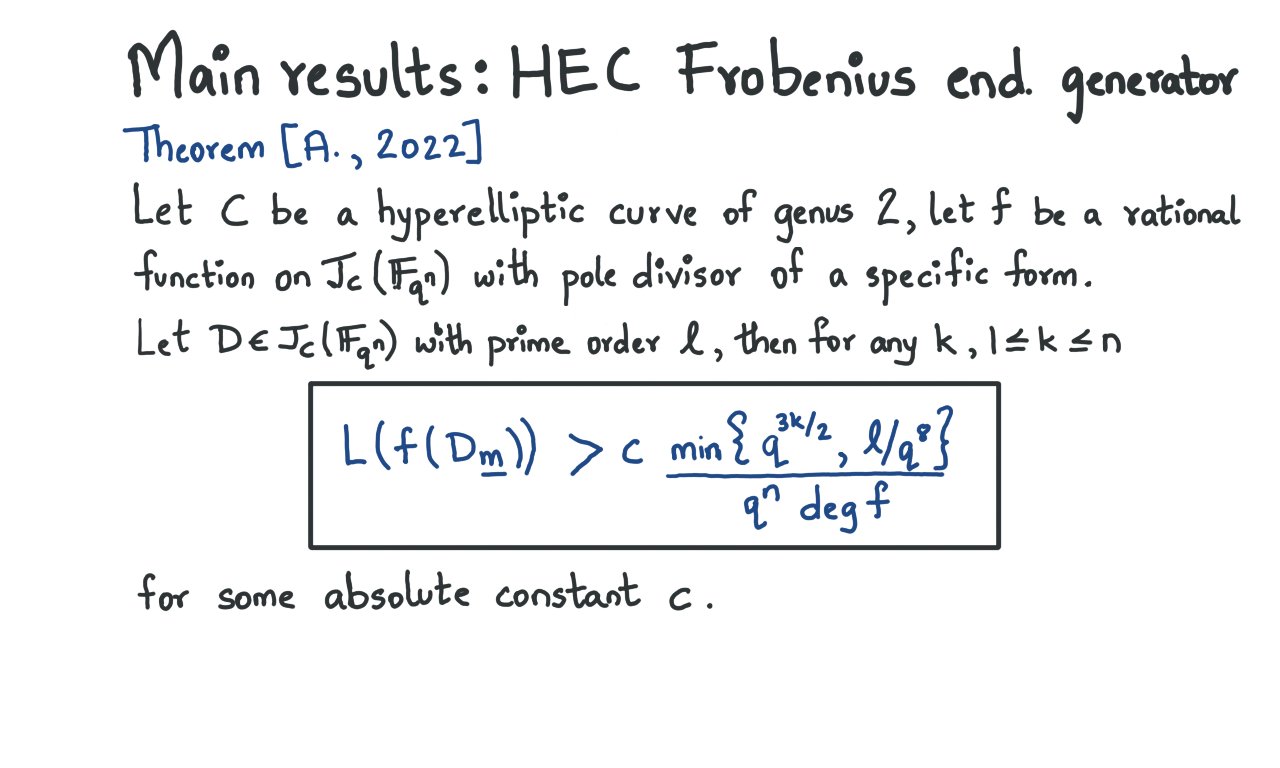 Main results: HEC Frobenius end. generator
Theorem [A., 2022]
Let C be a hyperelliptic curve of genus 2, let f be a rational
function on J_C(𝔽_{q^n}) with pole divisor of a specific form.
Let D ∈ J_C(𝔽_{q^n}) with prime order ℓ, then for any k, 1 ≤ k ≤ n
L(f(D_m)) > c min{q^{3k/2}, ℓ/q^8} / q^n deg f
for some absolute constant c.